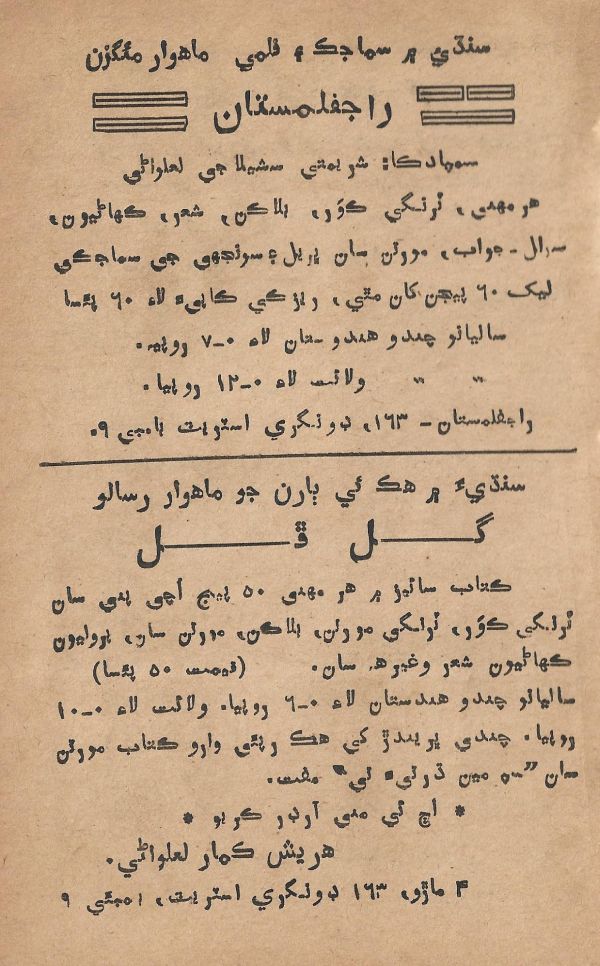 سنڌيءَ ۾ سماجڪ ۽ فلمي ماهوار مئگزن
راجفلمستان
سمپادڪا: شريمتي سشيلا جي لعلواڻي
هر مهني، ٽرنگي ڪَور، بلاڪن، شعر، ڪهاڻيون،
سوال-جواب، مورتن سان ڀريل ۽ سونجهي جي سماجڪي
ليک ٦٠ پيجن کان مٿي، رٻڙ کي ڪاپيءَ لاءِ ٦٠ پئسا
ساليانو چندو هندوستان لاءِ ٠-٧ روپيه.
" " ولائت لاءِ ٠-١٢ روپيا.
راجفلمستان - ١٦٣، ڊونگري اسٽريٽ بامبي ٩.
سنڌيءَ ۾ هڪ ئي ٻارن جو ماهوار رسالو
گــل ڦــل
ڪتاب سائيز ۾ هر مهني ٥٠ پيج اڇي پني سان
ٽرنگي ڪَور، ٽرنگي مورتن، بلاڪن، مورتن سان، پروليون
ڪهاڻيون شعر وغيره سان. (قيمت ٥٠ پئسا)
ساليانو چندو هندستان لاءِ ٠-٦ روپيا. ولائت لاءِ ٠-١٠
روپيا. چندي ڀريندڙ کي هڪ رپئي وارو ڪتاب مورتن
سان " مين ڌرتيءَ تي" مفت.
* اڄ ئي مني آرڊر ڪريو *
هريش ڪمار لعلواڻي.
٤ ماڙو، ١٦٣ ڊونگري اسٽريٽ، بمبئي ٩